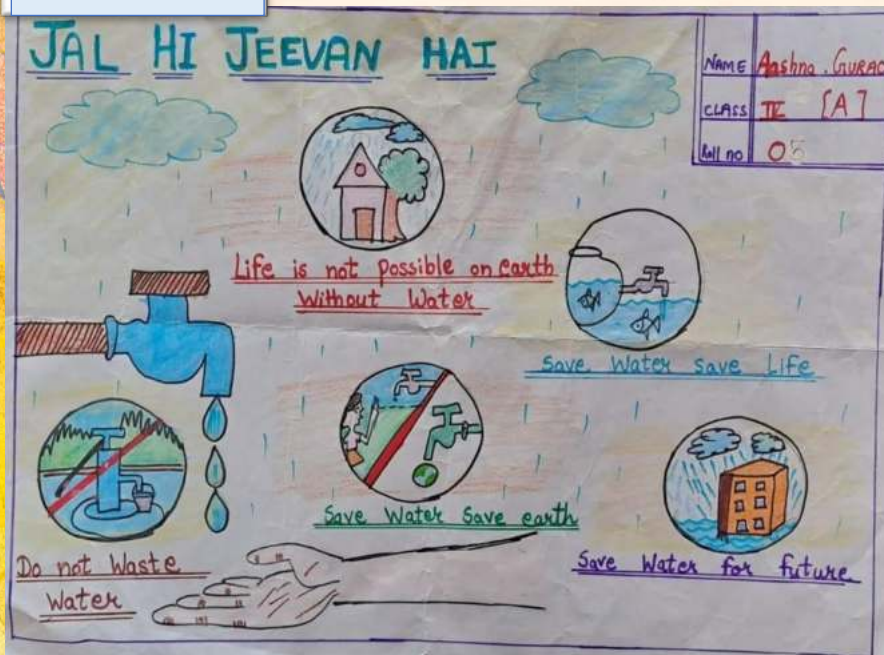 JAL HI JEEVAN HAI
NAME Aashna . GURAC
CLASS IV [A]
Roll no 05
Life is not possible on earth
Without Water
Save Water save Life
Save Water Save earth
Do not Waste
Water
Save Water for future